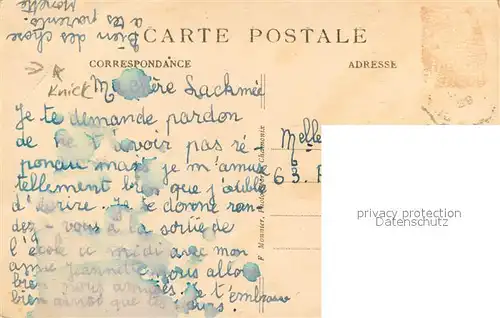 Bien des chose
a tes parents
Mariette
CARTE POSTALE
CORRESPONDANCE
ADRESSE
Knick
Ma chère Lackmée
Je te demande pardon
de ne t'avoir pas ré-
pondu mais je m'amuse
tellement bien que j'oublie
d'écrire. Je te donne ren
dez-vous à la sortie de
l'école à midi avec mon
amie Jeannette nous allons
bien nous amuser. Je t'embrasse
bien ainsi que tes
Melle
63.
F. Monnier, Chamonix
privacy protection
Datenschutz